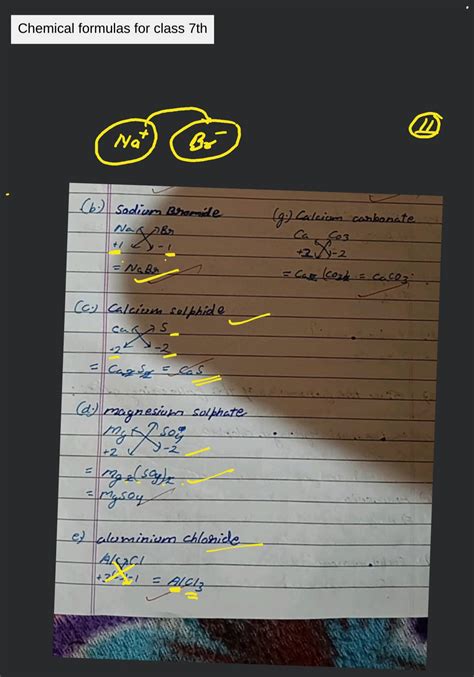 Chemical formulas for class 7th
Na+ Br-
11
(b.) Sodium Bromide
Na Br
+1 -1
= NaBr
(g.) Calcium carbonate
Ca Co3
+2 -2
= Ca2 (Co3)2 = CaCO3
(c.) Calcium sulphide
Ca S
+2 -2
= Ca2S2 = CaS
(d.) magnesium sulphate
Mg SO4
+2 -2
= Mg2(SO4)2
= MgSO4
e) aluminium chloride
Al Cl
+3 -1 = AlCl3